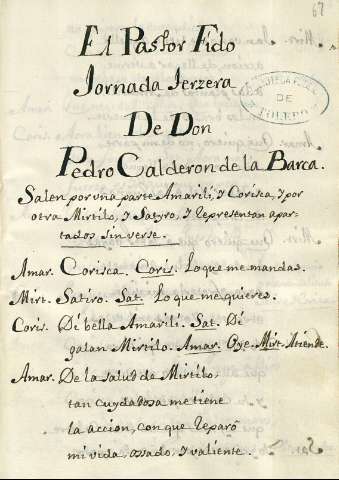 67
El Pastor Fido
Jornada Terzera
De Don
Pedro Calderon de la Barca.
DE
TOLEDO
Salen por vna parte Amarili, y Corisca, y por
otra Mirtilo, y Satyro, y Representan apar-
tados sin verse.
Amar. Corisca. Coris. Lo que me mandas.
Mirt. Satiro. Sat. Lo que me quieres.
Coris. Di bella Amarili. Sat. Di
galan Mirtilo. Amar. Oye. Mirt. Atiende.
Amar. De la salud de Mirtilo,
tan cuydadosa me tiene
la accion, con que reparò
mi vida, ossado, y valiente.